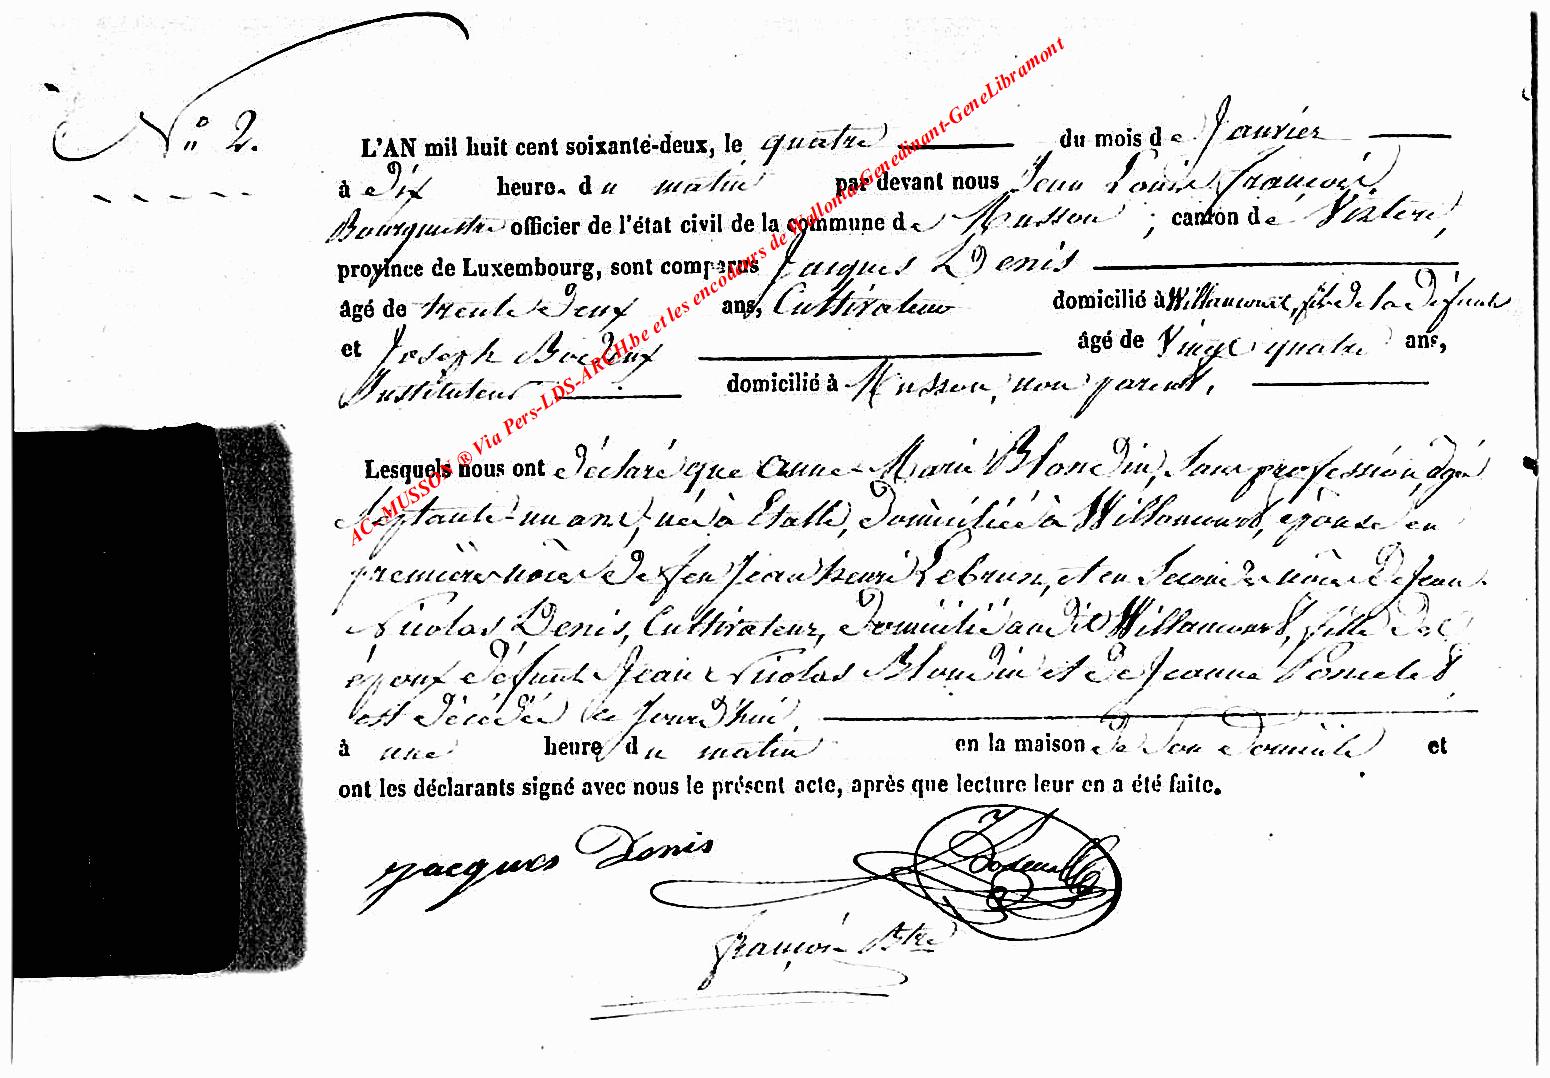 N° 2.
L'AN mil huit cent soixante-deux, le quatre du mois de Janvier
à Dix heure. du matin par devant nous Jean Louis François,
Bourguestre officier de l'état civil de la commune de Musson, canton de Virton,
province de Luxembourg, sont comparus Jacques Denis
âgé de trente Deux ans, Cultivateur domicilié à Willancourt, fils de la Défunte
et Joseph âgé de Vingt quatre ans,
Instituteur domicilié à Musson, non parent.
Lesquels nous ont Déclaré que Anne Marie Blondin, Sans profession, âgée
Septante-un ans, née à Etalle, Domiciliée à Willancourt, épouse en
premières nôces De feu Jean henri Lebrun, et en Secondes nôces De Jean
Nicolas Denis, Cultivateur, Domicilié au dit Willancourt, fille Des
époux défunts Jean Nicolas Blondin et De Jeanne Poncelet
est Décédée ce jourd'hui
à une heure du matin en la maison De Son Domicile et
ont les déclarants signé avec nous le présent acte, après que lecture leur en a été faite.
Jacques Denis
françois Btre
AC-MUSSON ® Via Pers-LDS-ARCH.be et les encodeurs de Wallonia-Genedinant-GeneLibramont